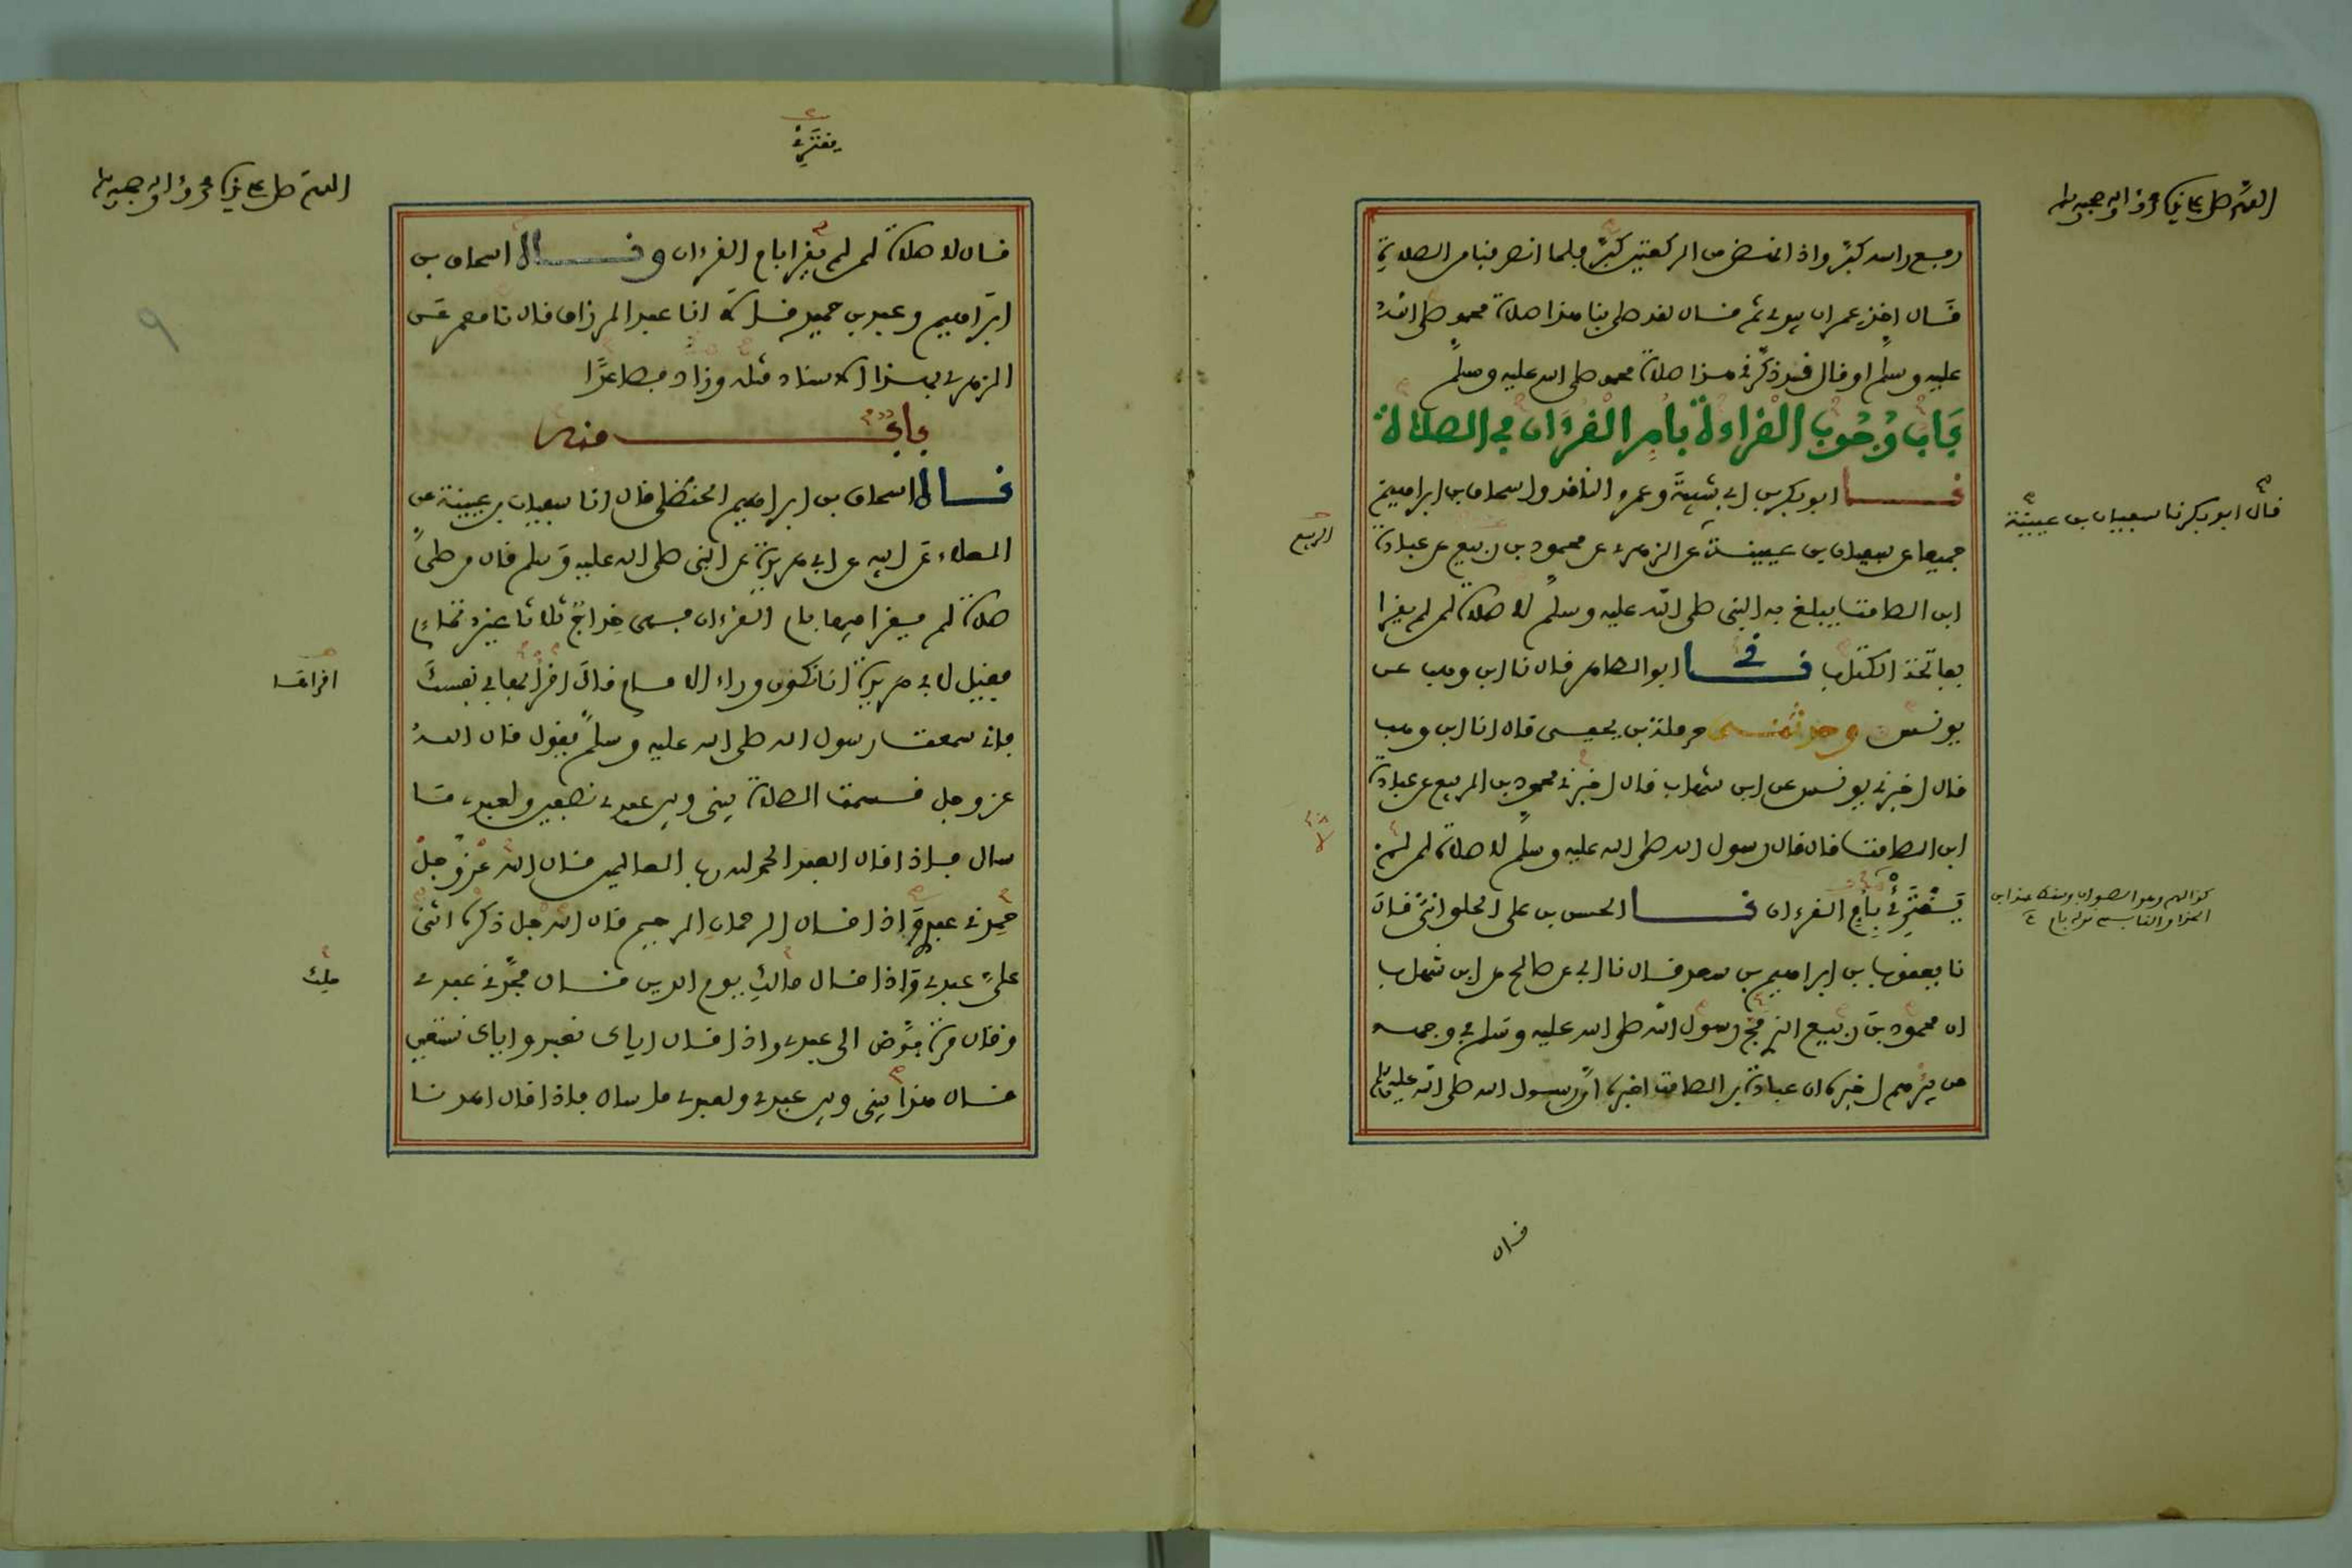 اللهم صل على سيدنا محمد وءاله وصحبه وسلم
رفع راسه كبر واذا نهض من الركعتين كبر فلما انصرفنا من الصلاة
قال اخذ عمران بيدي ثم قال لقد صلى بنا هذا صلاة محمد صلى الله
عليه وسلم او قال قد ذكرني هذا صلاة محمد صلى الله عليه وسلم
باب وجوب القراءة بام القرءان في الصلاة
نا ابو بكر بن ابي شيبة وعمرو الناقد واسحاق بن ابراهيم
قال ابو بكر نا سفيان بن عيينة
جميعا عن سفيان بن عيينة عن الزهري عن محمود بن ربيع عن عبادة
الربيع
ابن الصامت يبلغ به النبي صلى الله عليه وسلم لا صلاة لمن لم يقرا
بفاتحة الكتاب نا ابو الطاهر قال نا ابن وهب عن
يونس وحدثني حرملة بن يحيى قال انا ابن وهب
قال اخبرني يونس عن ابن شهاب قال اخبرني محمود بن الربيع عن عبادة
ابن الصامت قال قال رسول الله صلى الله عليه وسلم لا صلاة لمن لم
يقترئ بام القرءان نا الحسن بن علي الحلواني قال
نا يعقوب بن ابراهيم بن سعد قال نا ابي عن صالح عن ابن شهاب
ان محمود بن ربيع الذي مج رسول الله صلى الله عليه وسلم في وجهه
من بئرهم اخبره ان عبادة بن الصامت اخبره ان رسول الله صلى الله عليه وسلم
قال
اللهم صل على سيدنا محمد وءاله وصحبه وسلم
يقترئ
قال لا صلاة لمن لم يقرا بام القرءان وقال اسحاق بن
ابراهيم وعبد بن حميد قالا انا عبد الرزاق قال نا معمر عن
الزهري بهذا الاسناد مثله وزاد فصاعدا
باب منه
قال اسحاق بن ابراهيم الحنظلي قال انا سفيان بن عيينة عن
العلاء عن ابيه عن ابي هريرة عن النبي صلى الله عليه وسلم قال من صلى
صلاة لم يقرا فيها بام القرءان فهي خداج ثلاثا غير تمام
فقيل لابي هريرة انا نكون وراء الامام قال اقرأ بها في نفسك
اقرا بها
فاني سمعت رسول الله صلى الله عليه وسلم يقول قال الله
عز وجل قسمت الصلاة بيني وبين عبدي نصفين ولعبدي ما
سال فاذا قال العبد الحمد لله رب العالمين قال الله عز وجل
حمدني عبدي واذا قال الرحمان الرحيم قال الله جل ذكره اثنى
علي عبدي واذا قال مالك يوم الدين قال مجدني عبدي
ملك
وقال مرة فوض الى عبدي واذا قال اياك نعبد واياك نستعين
قال هذا بيني وبين عبدي ولعبدي ما سال فاذا قال اهدنا